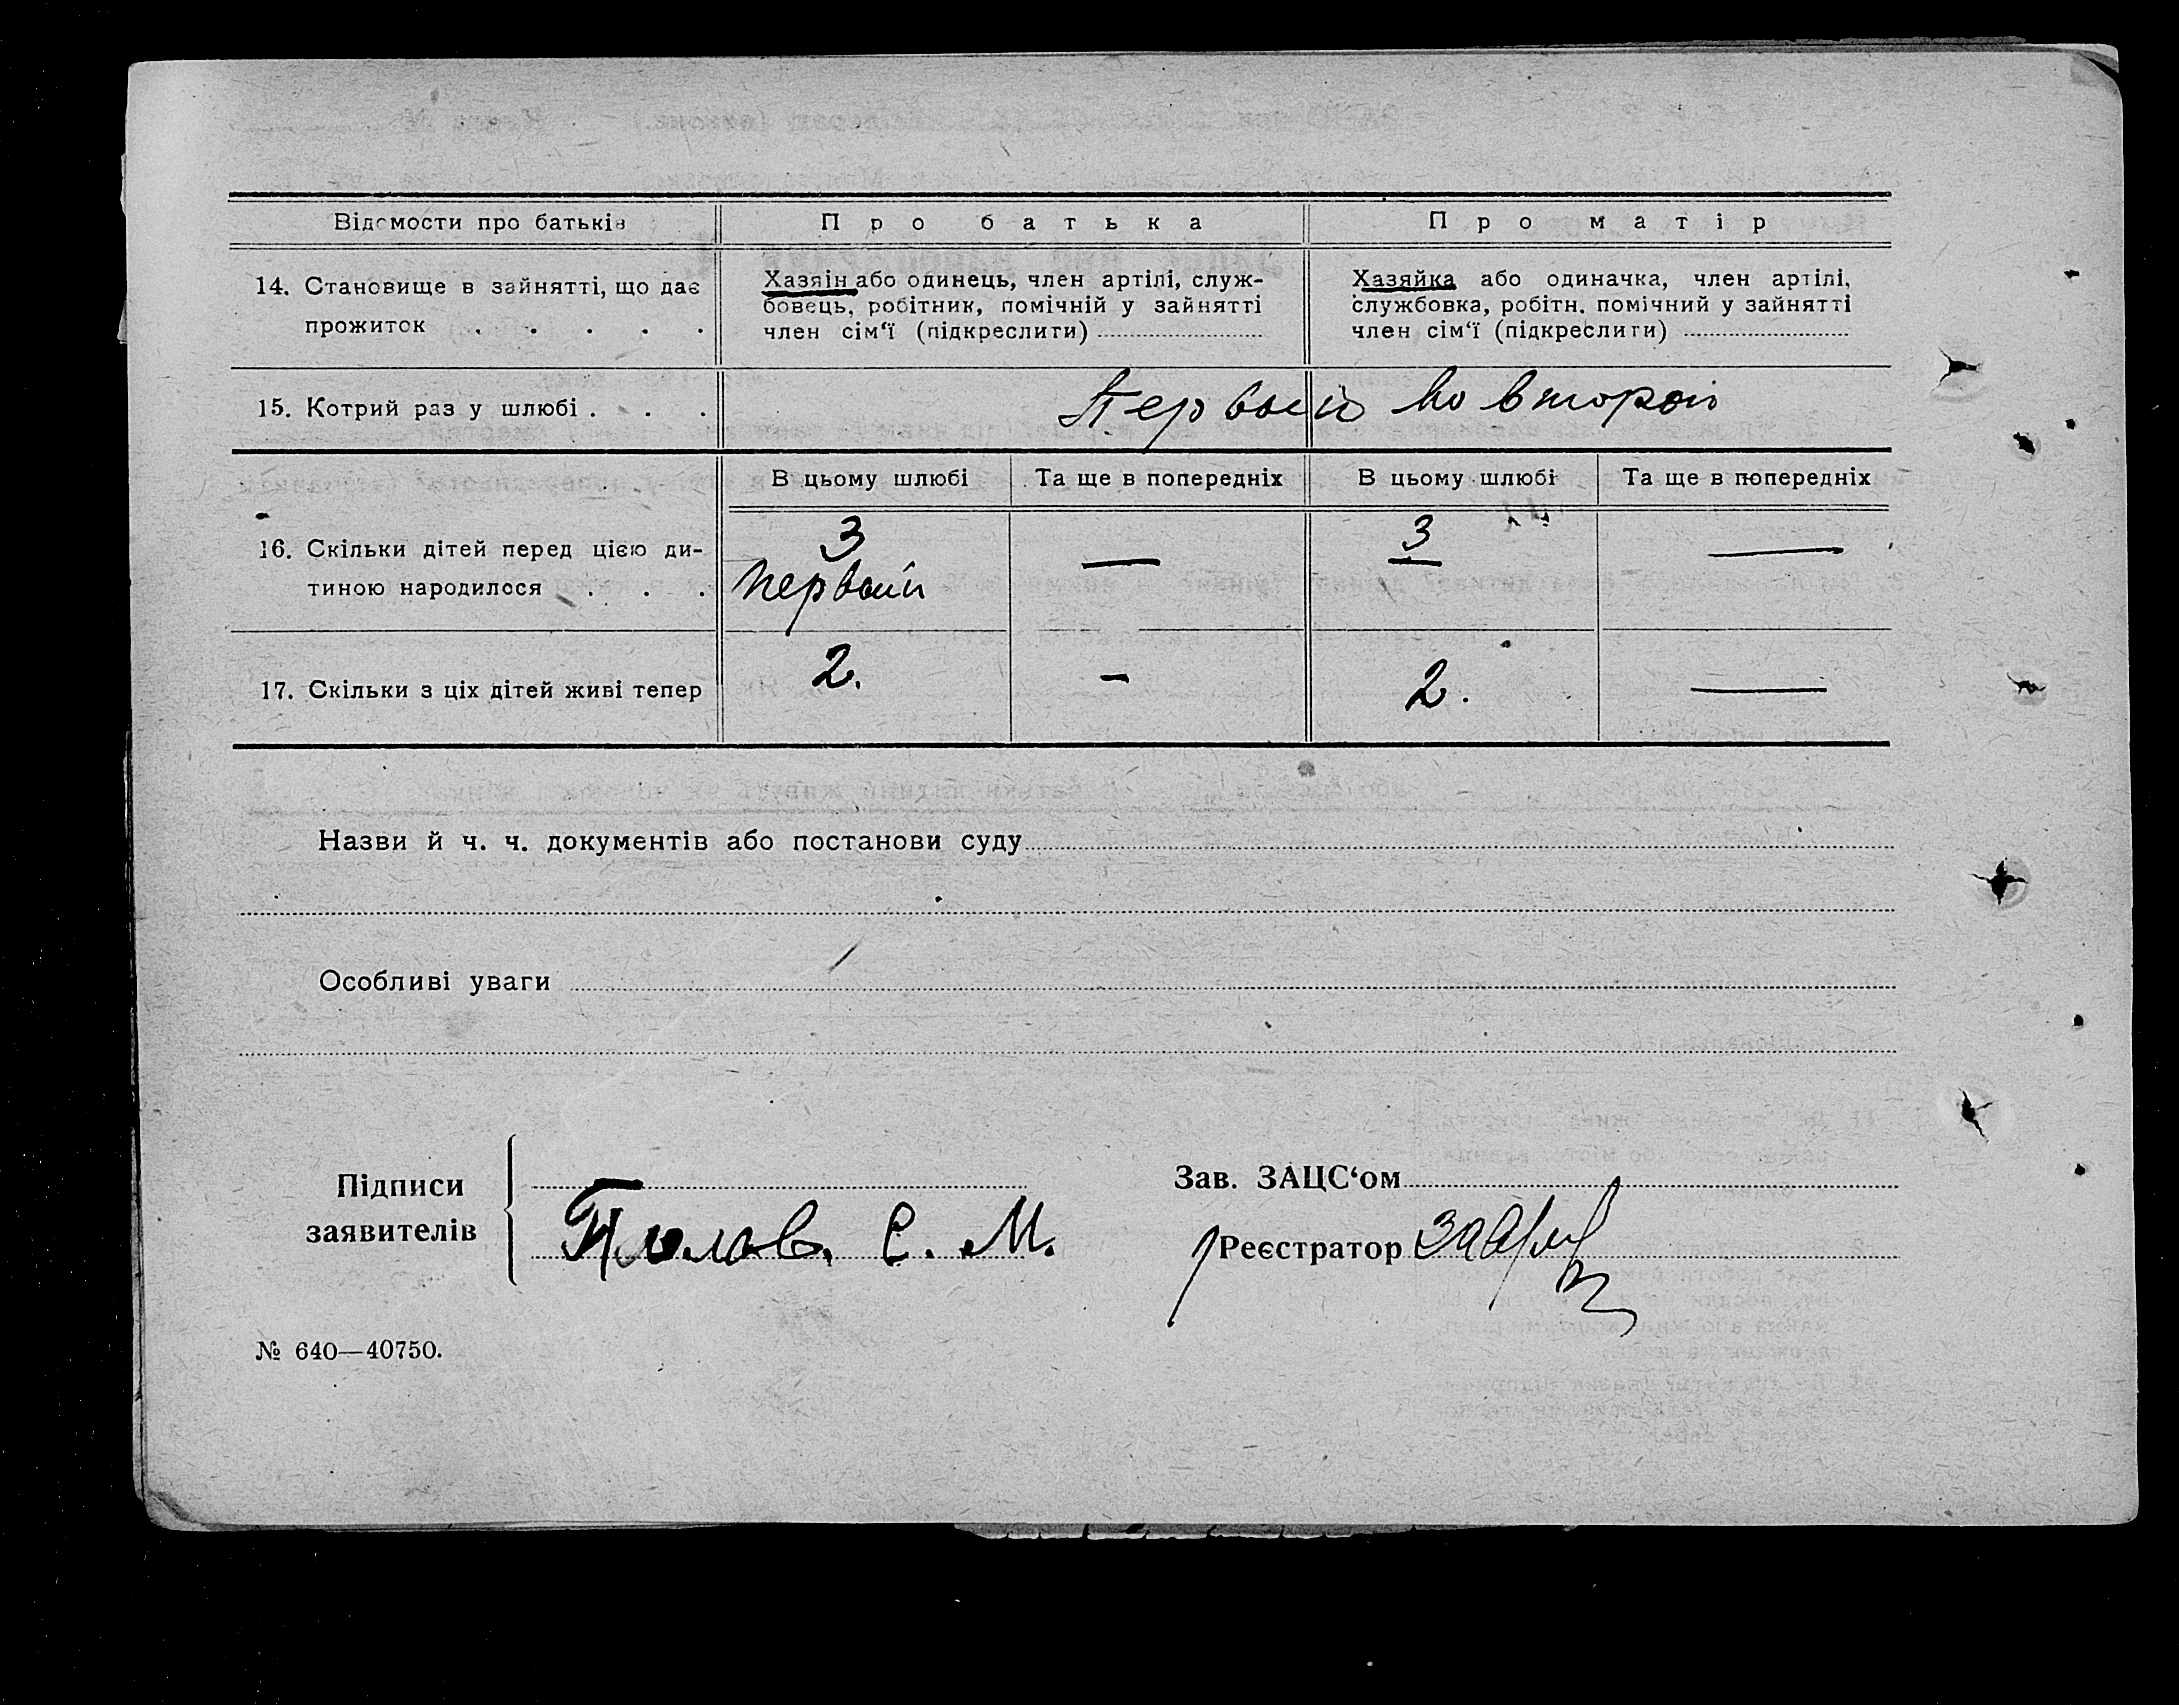 Відомости про батьків Про батька Про матір
14. Становище в зайнятті, що дає
прожиток . . . . .
Хазяін або одинець, член артілі, служ-
бовець, робітник, помічній у зайнятті
член сім‘ї (підкреслити)
Хазяйка або одиначка, член артілі,
службовка, робітн. помічний у зайнятті
член сім‘ї (підкреслити)
15. Котрий раз у шлюбі . . . Первый во второй
В цьому шлюбі Та ще в попередніх В цьому шлюбі Та ще в попередніх
16. Скільки дітей перед цією ди-
тиною народилося . . .
3 — 3 —
первый
17. Скільки з ціх дітей живі тепер 2. - 2. —
Назви й ч. ч. документів або постанови суду
Особливі уваги
Підписи
заявителів
С. М.
Зав. ЗАЦС‘ом
Реєстратор
№ 640—40750.